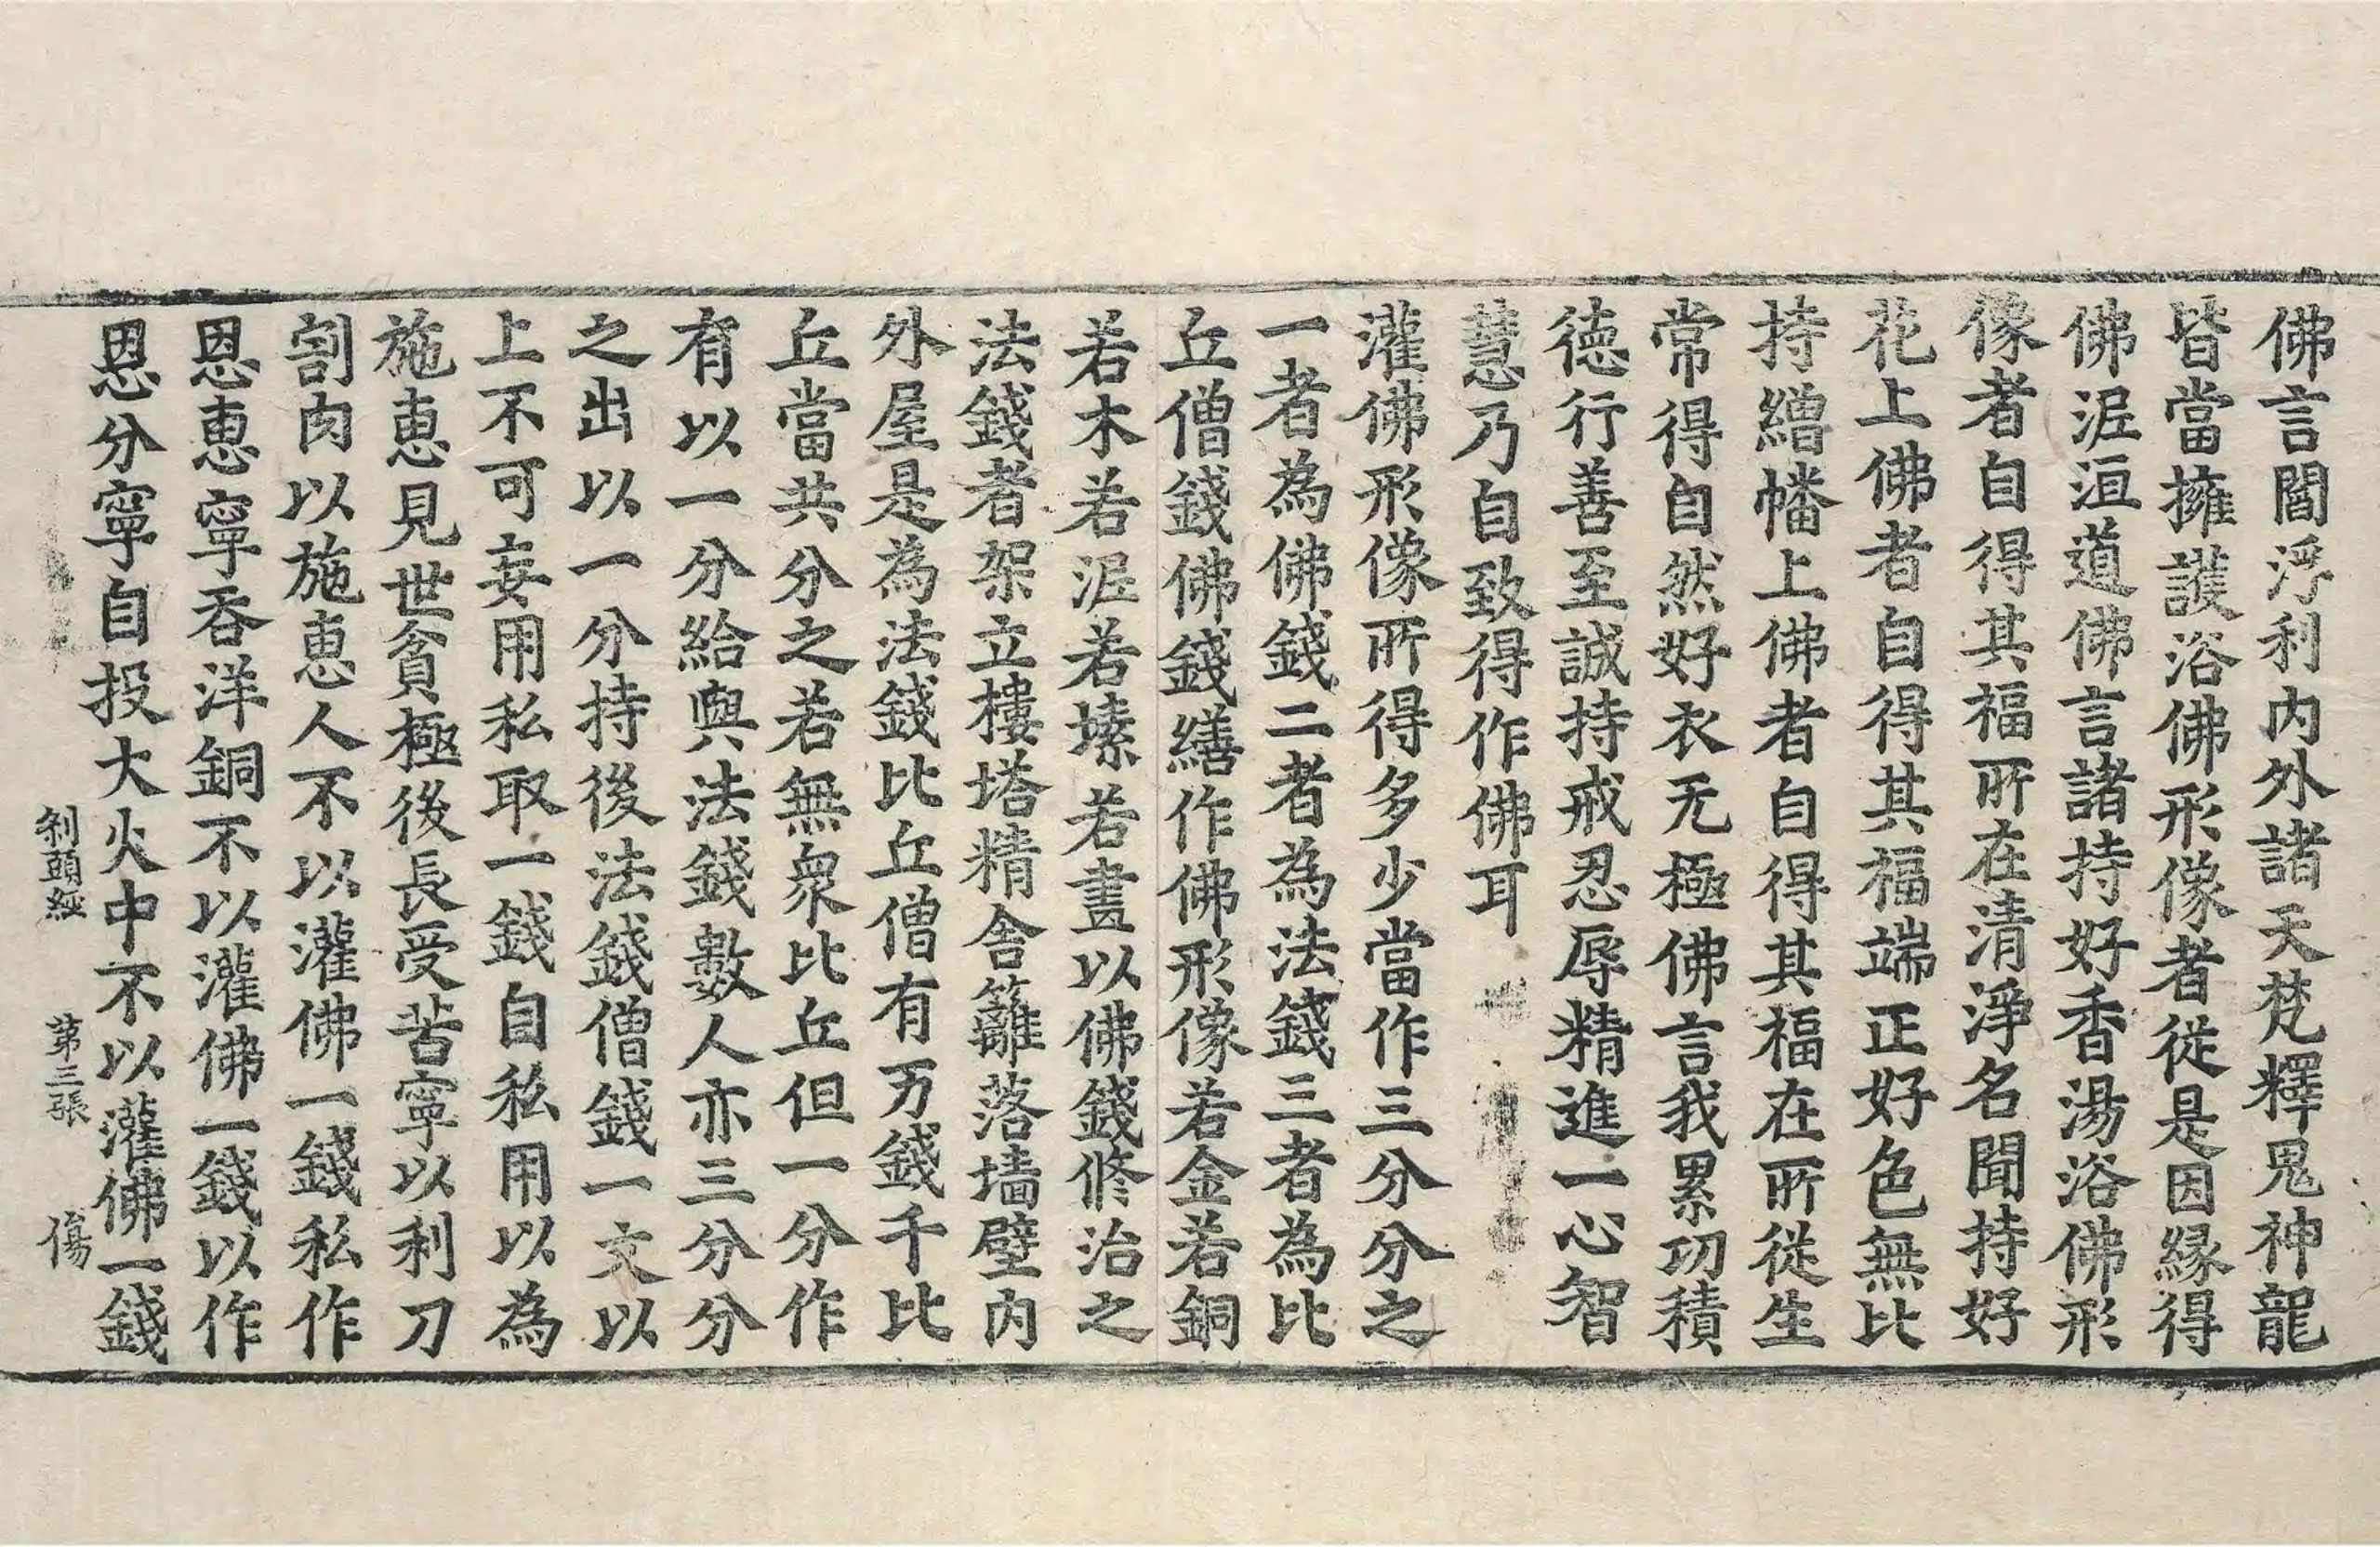 佛言閻浮利内外諸天梵釋鬼神龍
皆當擁護浴佛形像者從是因緣得
佛泥洹道佛言諸持好香湯浴佛形
像者自得其福所在清淨名聞持好
花上佛者自得其福端正好色無比
持繒幡上佛者自得其福在所從生
常得自然好衣无極佛言我累功積
德行善至誠持戒忍辱精進一心智
慧乃自致得作佛耳
灌佛形像所得多少當作三分分之
一者為佛錢二者為法錢三者為比
丘僧錢佛錢繕作佛形像若金若銅
若木若泥若塐若畫以佛錢修治之
法錢者架立樓塔精舍籬落墙壁内
外屋是為法錢比丘僧有万錢千比
丘當共分之若無衆比丘但一分作
有以一分給與法錢數人亦三分分
之出以一分持後法錢僧錢一文以
上不可妄用私取一錢自私用以為
施恵見世貧極後長受苦寧以利刀
割肉以施恵人不以灌佛一錢私作
恩恵寧吞洋銅不以灌佛一錢以作
恩分寧自投大火中不以灌佛一錢
刹頭經 第三張 傷